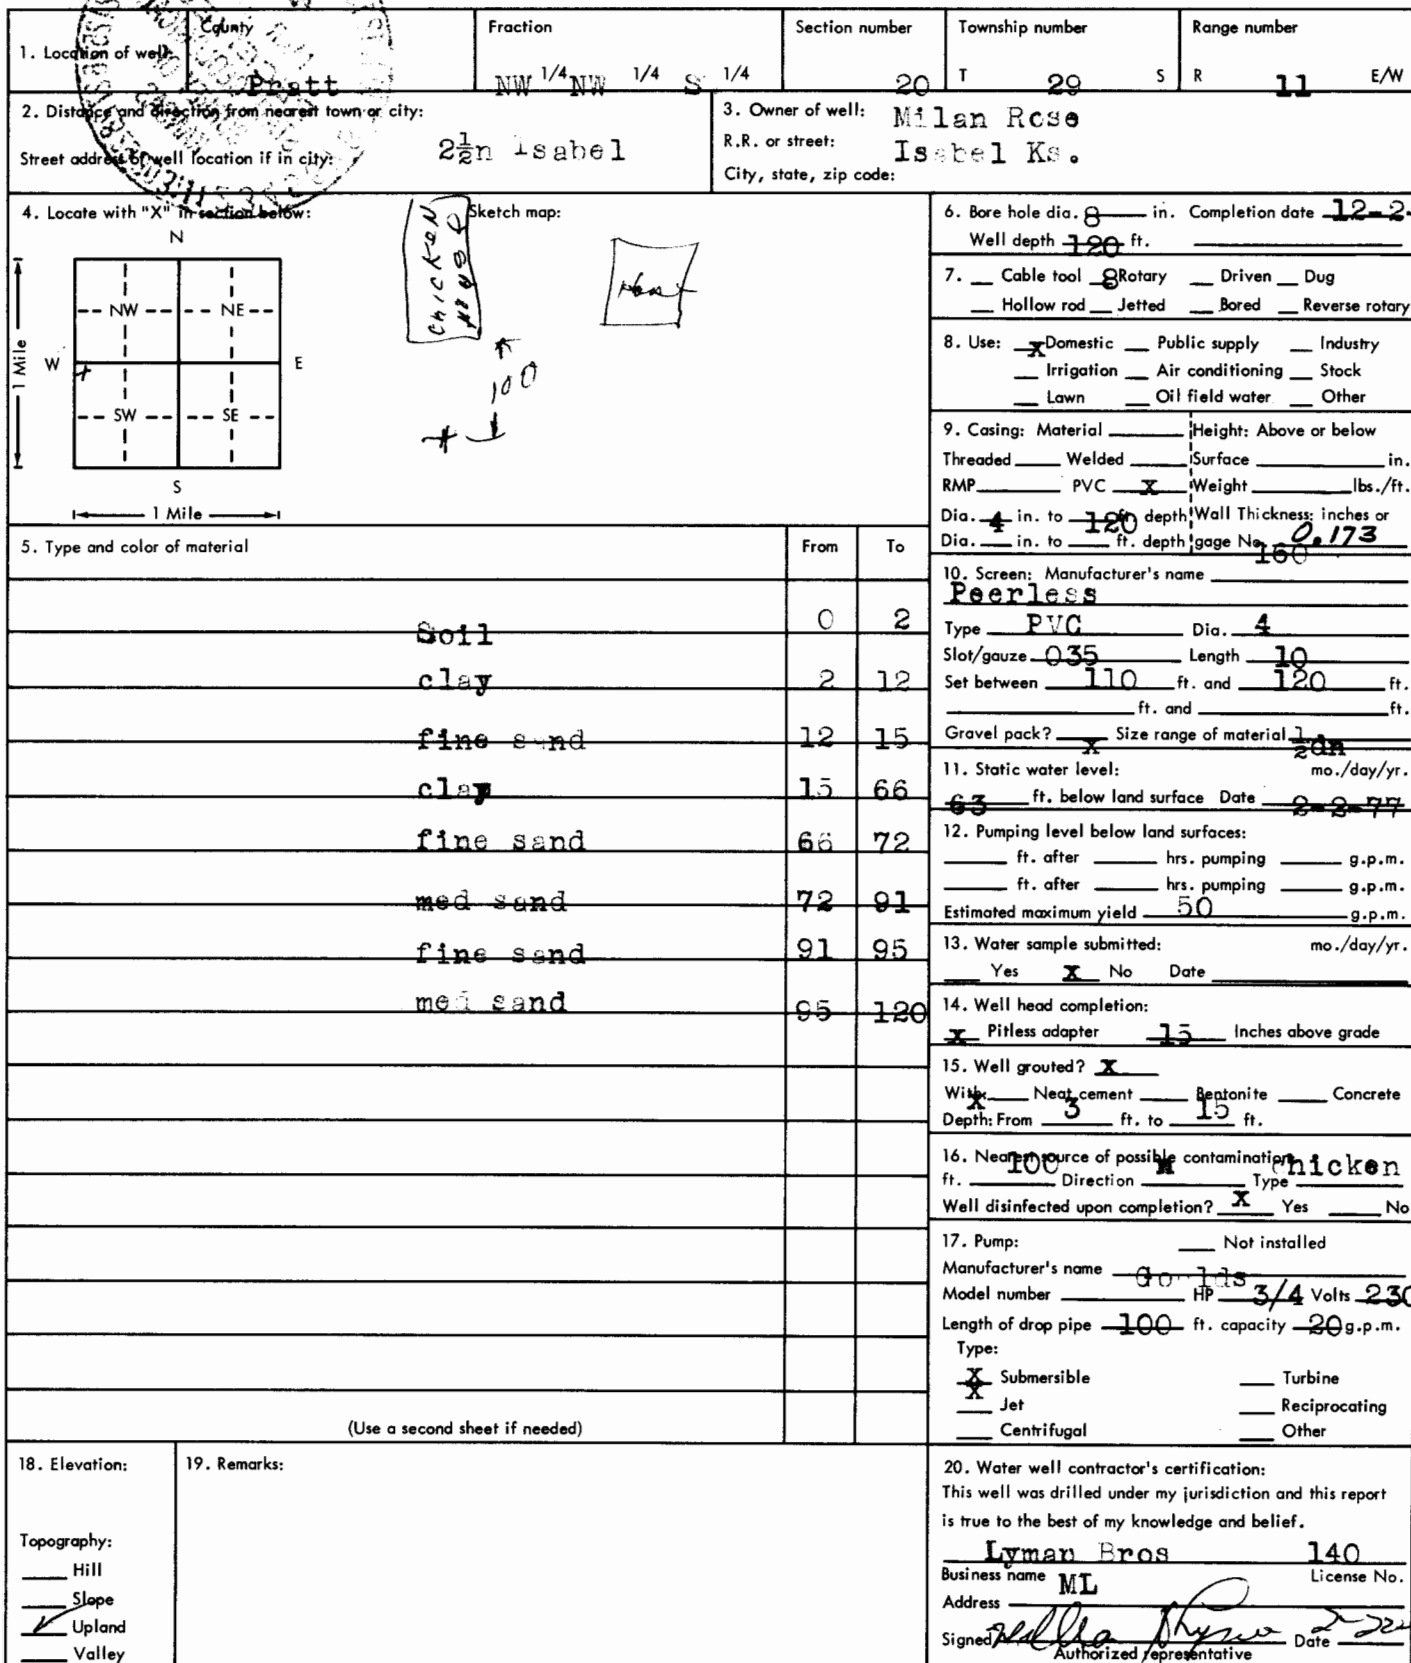 1. Location of well: County Pratt Fraction NW 1/4 NW 1/4 S 1/4 Section number 20 Township number T 29 S Range number R 11 E/W
2. Distance and direction from nearest town or city: 2½n Isabel
Street address of well location if in city:
3. Owner of well: Milan Rose
R.R. or street: Isabel Ks.
City, state, zip code:
4. Locate with "X" in section below:
N
NW NE
W E
SW SE
S
1 Mile
1 Mile
Sketch map:
Chicken House
100
5. Type and color of material From To
Soil 0 2
clay 2 12
fine sand 12 15
clay 15 66
fine sand 66 72
med sand 72 91
fine sand 91 95
med sand 95 120
(Use a second sheet if needed)
6. Bore hole dia. 8 in. Completion date 12-2-
Well depth 120 ft.
7. Cable tool 8 Rotary Driven Dug
Hollow rod Jetted Bored Reverse rotary
8. Use: X Domestic Public supply Industry
Irrigation Air conditioning Stock
Lawn Oil field water Other
9. Casing: Material Height: Above or below
Threaded Welded Surface in.
RMP PVC X Weight lbs./ft.
Dia. 4 in. to 120 ft. depth Wall Thickness: inches or
Dia. in. to ft. depth gage No. 160 0.173
10. Screen: Manufacturer's name
Peerless
Type PVC Dia. 4
Slot/gauze 035 Length 10
Set between 110 ft. and 120 ft.
ft. and ft.
Gravel pack? X Size range of material ½dn
11. Static water level: mo./day/yr.
63 ft. below land surface Date 2-2-77
12. Pumping level below land surfaces:
ft. after hrs. pumping g.p.m.
ft. after hrs. pumping g.p.m.
Estimated maximum yield 50 g.p.m.
13. Water sample submitted: mo./day/yr.
Yes X No Date
14. Well head completion:
X Pitless adapter 15 Inches above grade
15. Well grouted? X
With: X Neat cement Bentonite Concrete
Depth: From 3 ft. to 15 ft.
16. Nearest source of possible contamination:
ft. 100 Direction Type Chicken
Well disinfected upon completion? X Yes No
17. Pump: Not installed
Manufacturer's name Goulds
Model number HP 3/4 Volts 230
Length of drop pipe 100 ft. capacity 20 g.p.m.
Type:
X Submersible Turbine
X Jet Reciprocating
Centrifugal Other
18. Elevation:
Topography:
Hill
Slope
Upland
Valley
19. Remarks:
20. Water well contractor's certification:
This well was drilled under my jurisdiction and this report
is true to the best of my knowledge and belief.
Lyman Bros 140
Business name License No.
Address ML
Signed Date 2-22
Authorized representative